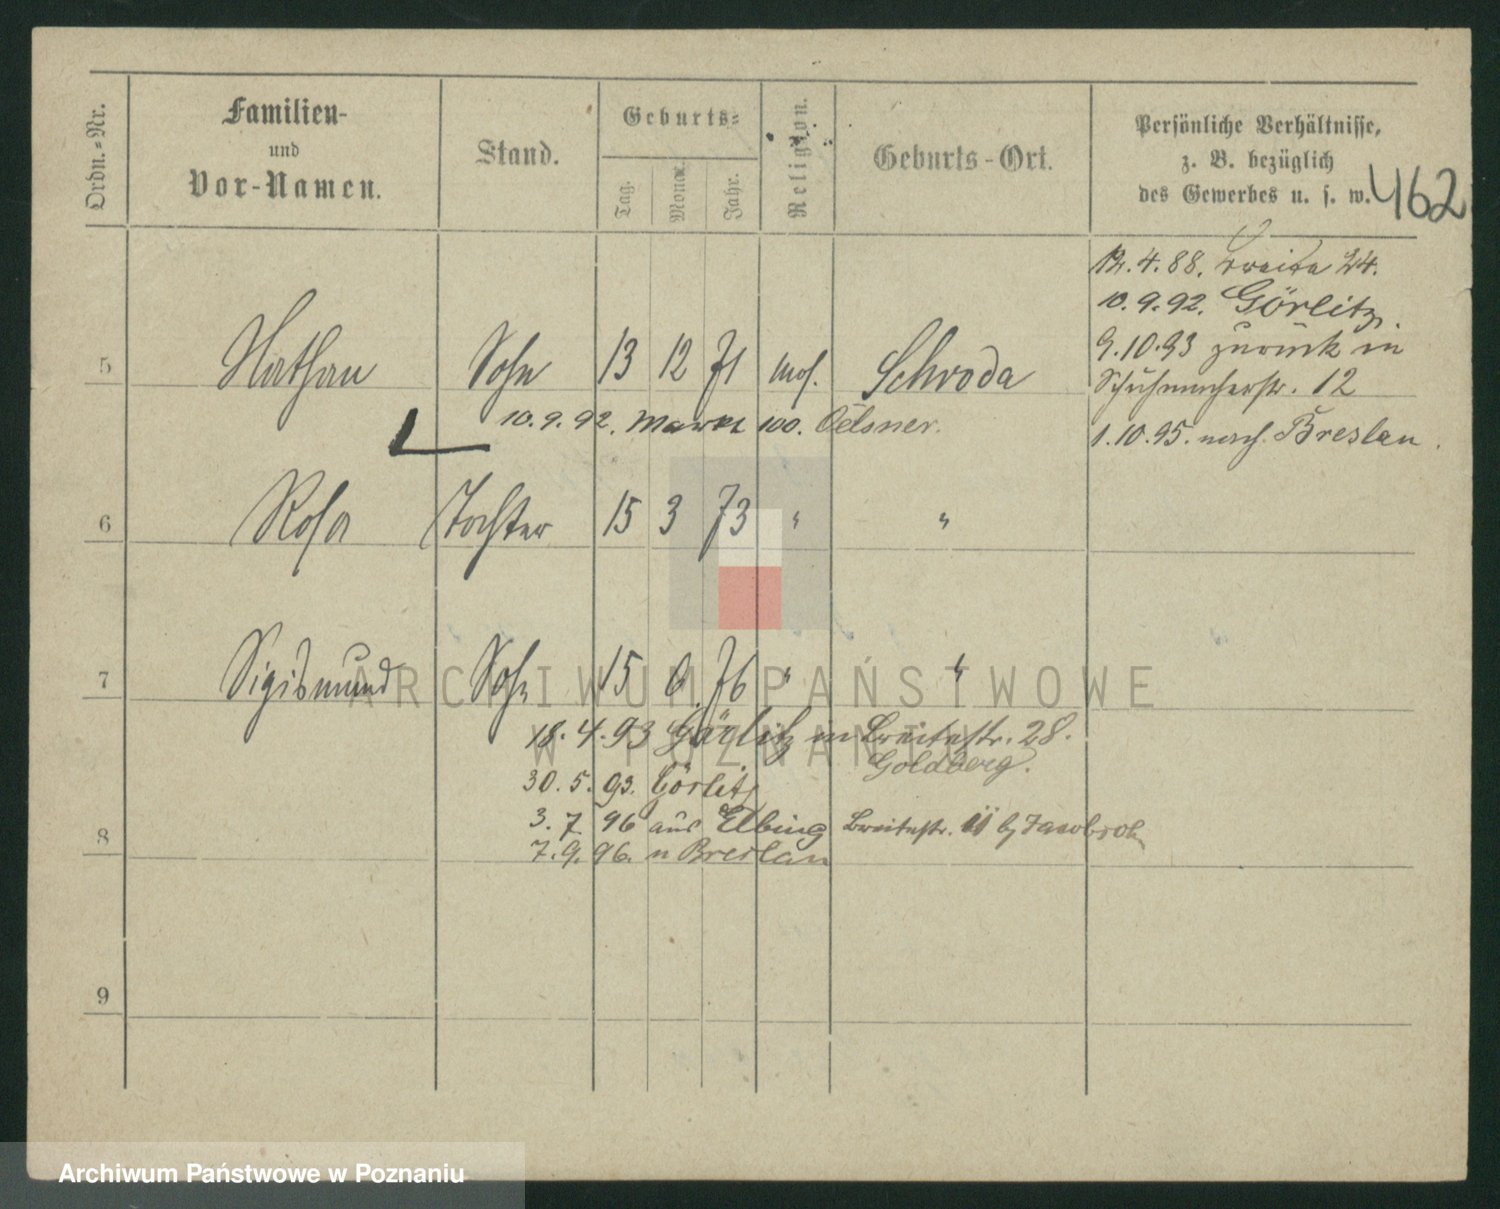 Ordn.-Nr.
Familien-
und
Vor-Namen.
Stand.
Geburts-
Tag.
Monat.
Jahr.
Religion.
Geburts-Ort.
Persönliche Verhältnisse,
z. B. bezüglich
des Gewerbes u. s. w.
462
12.4.88. Breite 24.
10.9.92. Görlitz.
9.10.93 zurück in
Schuhmacherstr. 12
1.10.95. nach Breslau.
5 Nathan Sohn 13 12 71 mos. Schroda
10.9.92. Markt 100. Oelsner.
6 Rosa Tochter 15 3 73 " "
7 Sigismund Sohn 15 6 76 " "
18.4.93 Görlitz in Breitestr. 28.
Goldberg.
30.5.93. Görlitz
8
3.7 96 aus Elbing Breitestr. 11 b/ Jacobsohn
7.9.96. n Breslau
9
ARCHIWUM PAŃSTWOWE
W POZNANIU
Archiwum Państwowe w Poznaniu